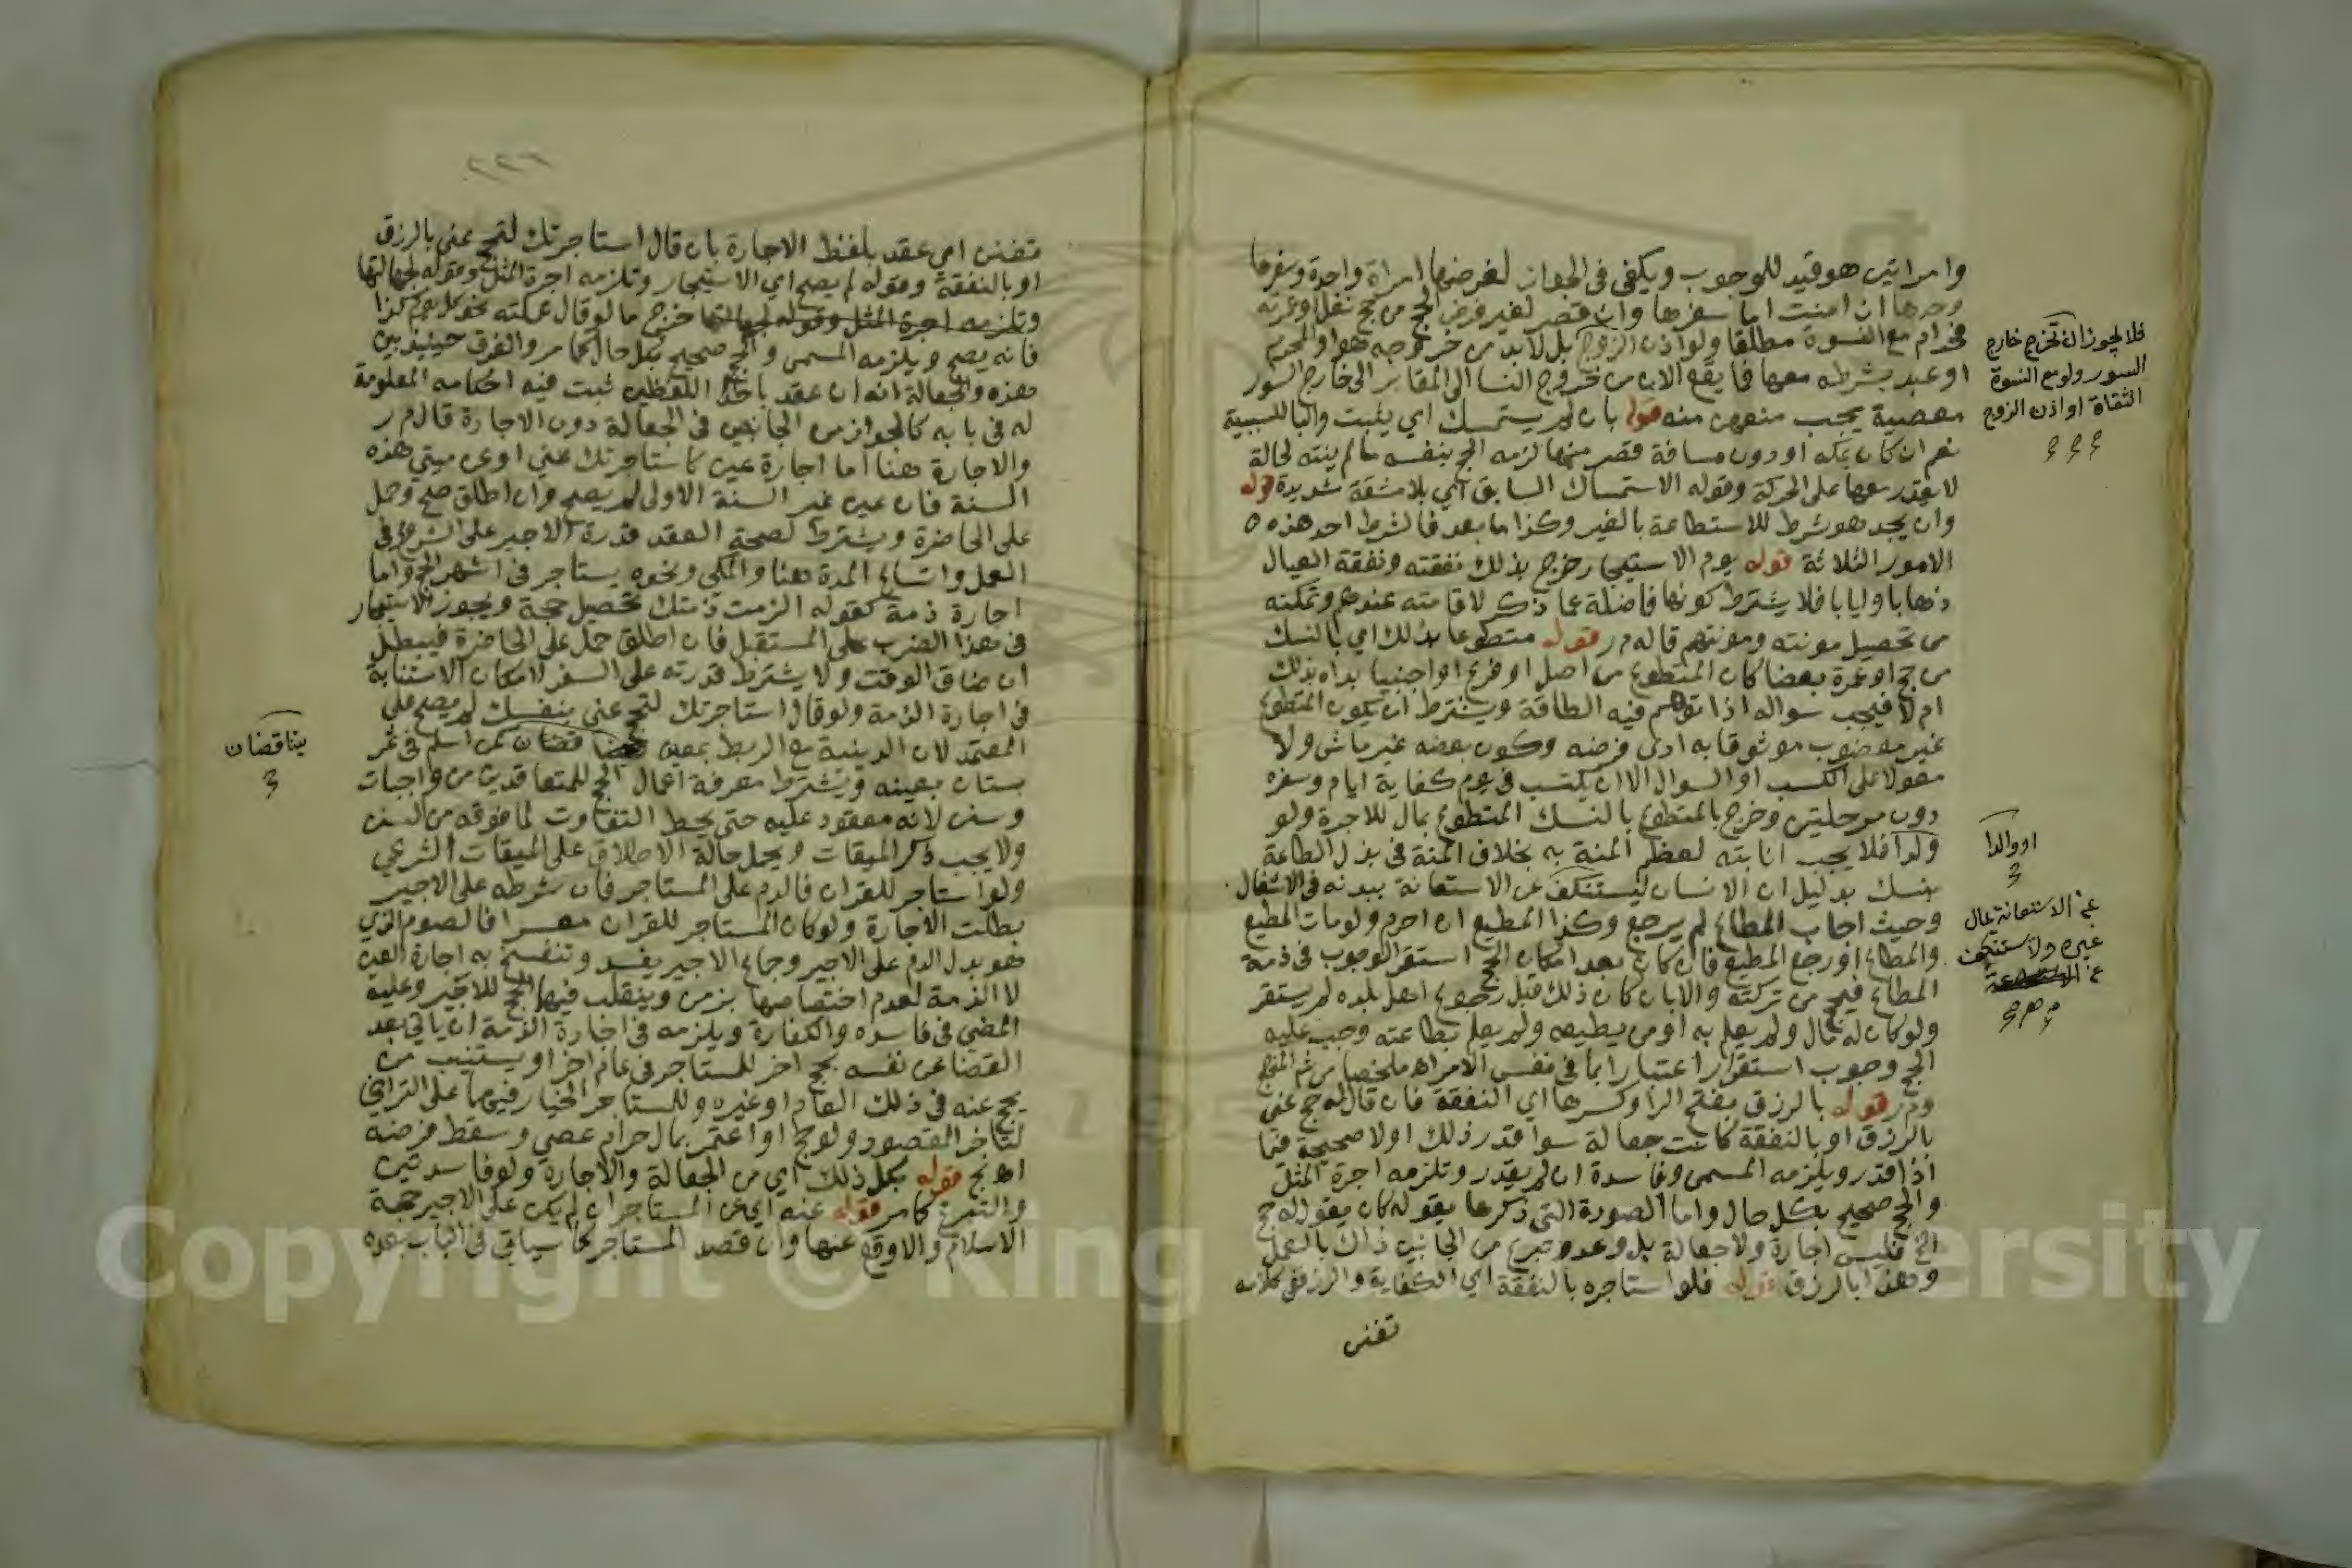 وامراتين هو قيد للوجوب ويكفى فى الجواز لفرضها امراة واحدة وسفرها
وحدها ان امنت اما سفرها وان قصر لغير فرض الحج من حج نفل او عمرته
فحرام مع النسوة مطلقا ولو اذن الزوج بل لابد من خروجه هو او المحرم
او عبد بشرطه معها فما يقع الان من خروج النسا الى المقابر الى خارج السور
معصية يجب منعهن منه قوله بان لم يستمسك اي يثبت
نعم ان كان بمكه او دون مسافة قصر منها لزمه الحج بنفسه ما لم ينته لحالة
لا يقدر معها على الحركة وقوله الاستمساك السابق اي بلا مشقة شديدة قوله
وان يجد هو شرط للاستطاعة بالغير وكذا ما بعد فالشرط احد هذه
الامور الثلاثة قوله يوم الاستيجار خرج بذلك نفقته ونفقة العيال
ذهابا وايابا فلا يشترط كونها فاضلة عما ذكر لاقامته عندهم وتمكنه
من تحصيل مونته ومونتهم قاله م ر قوله متطوعا بذلك اي بالنسك
من حج او عمرة بعضا كان المتطوع من اصل او فرع او اجنبيا بداه بذلك
ام لا فيجب سواله اذا توسم فيه الطاقة ويشترط ان يكون المتطوع
غير معضوب موثوقا به ادى فرضه وكون بعضه غير ماش ولا
معولا على الكسب او السوال الا ان يكتسب فى يوم كفاية ايام وسفره
دون مرحلتين وخرج بالمتطوع بالنسك المتطوع بمال للاجرة ولو
ولدا فلا يجب انابته لعظم المنة به بخلاف المنة فى بذل الطاعة
بنسك بدليل ان الانسان ليستنكف عن الاستعانة ببدنه فى الاشغال
وحيث اجاب المطاع لم يرجع وكذا المطيع ان احرم ولو مات المطيع
والمطاع او رجع المطيع فان كان بعد امكان الحج استقر الوجوب فى ذمة
المطاع فيحج من تركته والا بان كان ذلك قبل رجوع اهل بلده لم يستقر
ولو كان له مال ولم يعلم به او من يطيعه ولم يعلم بطاعته وجب عليه
الحج وجوب استقرار اعتبارا بما فى نفس الامر اه ملخصا من شم المنهج
وم ر قوله بالرزق بفتح الرا وكسرها اي النفقة فان قال له حج عنى
بالرزق او بالنفقة كانت جعالة سوا قدر ذلك او لا صحيحة فيما
اذا قدر ويلزمه المسمى وفاسدة ان لم يقدر وتلزمه اجرة المثل
والحج صحيح بكل حال واما الصورة التى ذكرها بقوله كان يقول له حج
الخ فليس اجارة ولا جعالة بل وعد وتبرع من الجانبين ذاك بالعمل
وهذا بالرزق قوله فلو استاجره بالنفقة اي الكفاية والرزق فى كلامه
تفنن
فلا يجوز ان تخرج خارج
السور ولو مع النسوة
الثقاة او اذن الزوج
او والدا
عن الاستعانة بمال
غيره ولا يستنكف
٢٢٦
تفنن اي عقد بلفظ الاجارة بان قال استاجرتك لتحج عنى بالرزق
او بالنفقة وقوله لم يصح اي الاستيجار وتلزمه اجرة المثل وقوله لجهالتها
وتلزمه اجرة المثل وقوله لجهالتها خرج ما لو قال عمكته نحو كل يوم كذا
فانه يصح ويلزمه المسمى والحج صحيح بكل حال كما مر والفرق حينيذ بين
هذه والجعالة انه ان عقد باحد اللفظين ثبت فيه احكامه المعلومة
له فى بابه كالجواز من الجانبين فى الجعالة دون الاجارة قال م ر
والاجارة هنا اما اجارة عين كاستاجرتك عني او عن ميتي هذه
السنة فان عين غير السنة الاولى لم يصح وان اطلق صح وحمل
على الحاضرة ويشترط لصحة العقد قدرة الاجير على الشروع فى
العمل واتساع المدة هنا والمكى ونحوه يستاجر فى اشهر الحج واما
اجارة ذمة كقوله الزمت ذمتك تحصيل حجة ويجوز الاستيجار
فى هذا الضرب على المستقبل فان اطلق حمل على الحاضرة فيبطل
ان ضاق الوقت ولا يشترط قدرته على السفر لامكان الاستنابة
فى اجارة الذمة ولو قال استاجرتك لتحج عنى بنفسك لم يصح على
المعتمد لان الدينية مع الربط بمعين كمن اسلم فى ثمر
بستان بعينه ويشترط معرفة اعمال الحج للمتعاقدين من واجبات
وسنن لانه معقود عليه حتى يحط التفاوت لما فوقه من السنن
ولا يجب ذكر الميقات ويحمل حالة الاطلاق على الميقات الشرعي
ولو استاجر للقران فالدم على المستاجر فان شرطه على الاجير
بطلت الاجارة ولو كان المستاجر للقران معسرا فالصوم الذي
هو بدل الدم على الاجير وجماع الاجير يفسد وتنفسخ به اجارة العين
لا الذمة لعدم اختصاصها بزمن وينقلب فيهما الحج للاجير وعليه
المضي فى فاسده والكفارة ويلزمه فى اجارة الذمة ان ياتي بعد
القضا عن نفسه بحج اخر للمستاجر فى عام اخر او يستنيب من
يحج عنه فى ذلك العام او غيره وللمستاجر الخيار فيهما على التراخي
لتاخر المقصود ولو حج او اعتمر بمال حرام عصي وسقط فرضه
اه بج قوله بكل ذلك اي من الجعالة والاجارة ولو فاسدتين
والتبرع كما مر قوله عنه اي عن المستاجر ان لم يكن على الاجير حجة
الاسلام والا وقع عنها وان قصد المستاجر كما سياتي فى الباب بعده
يتناقضان
Copyright © King University